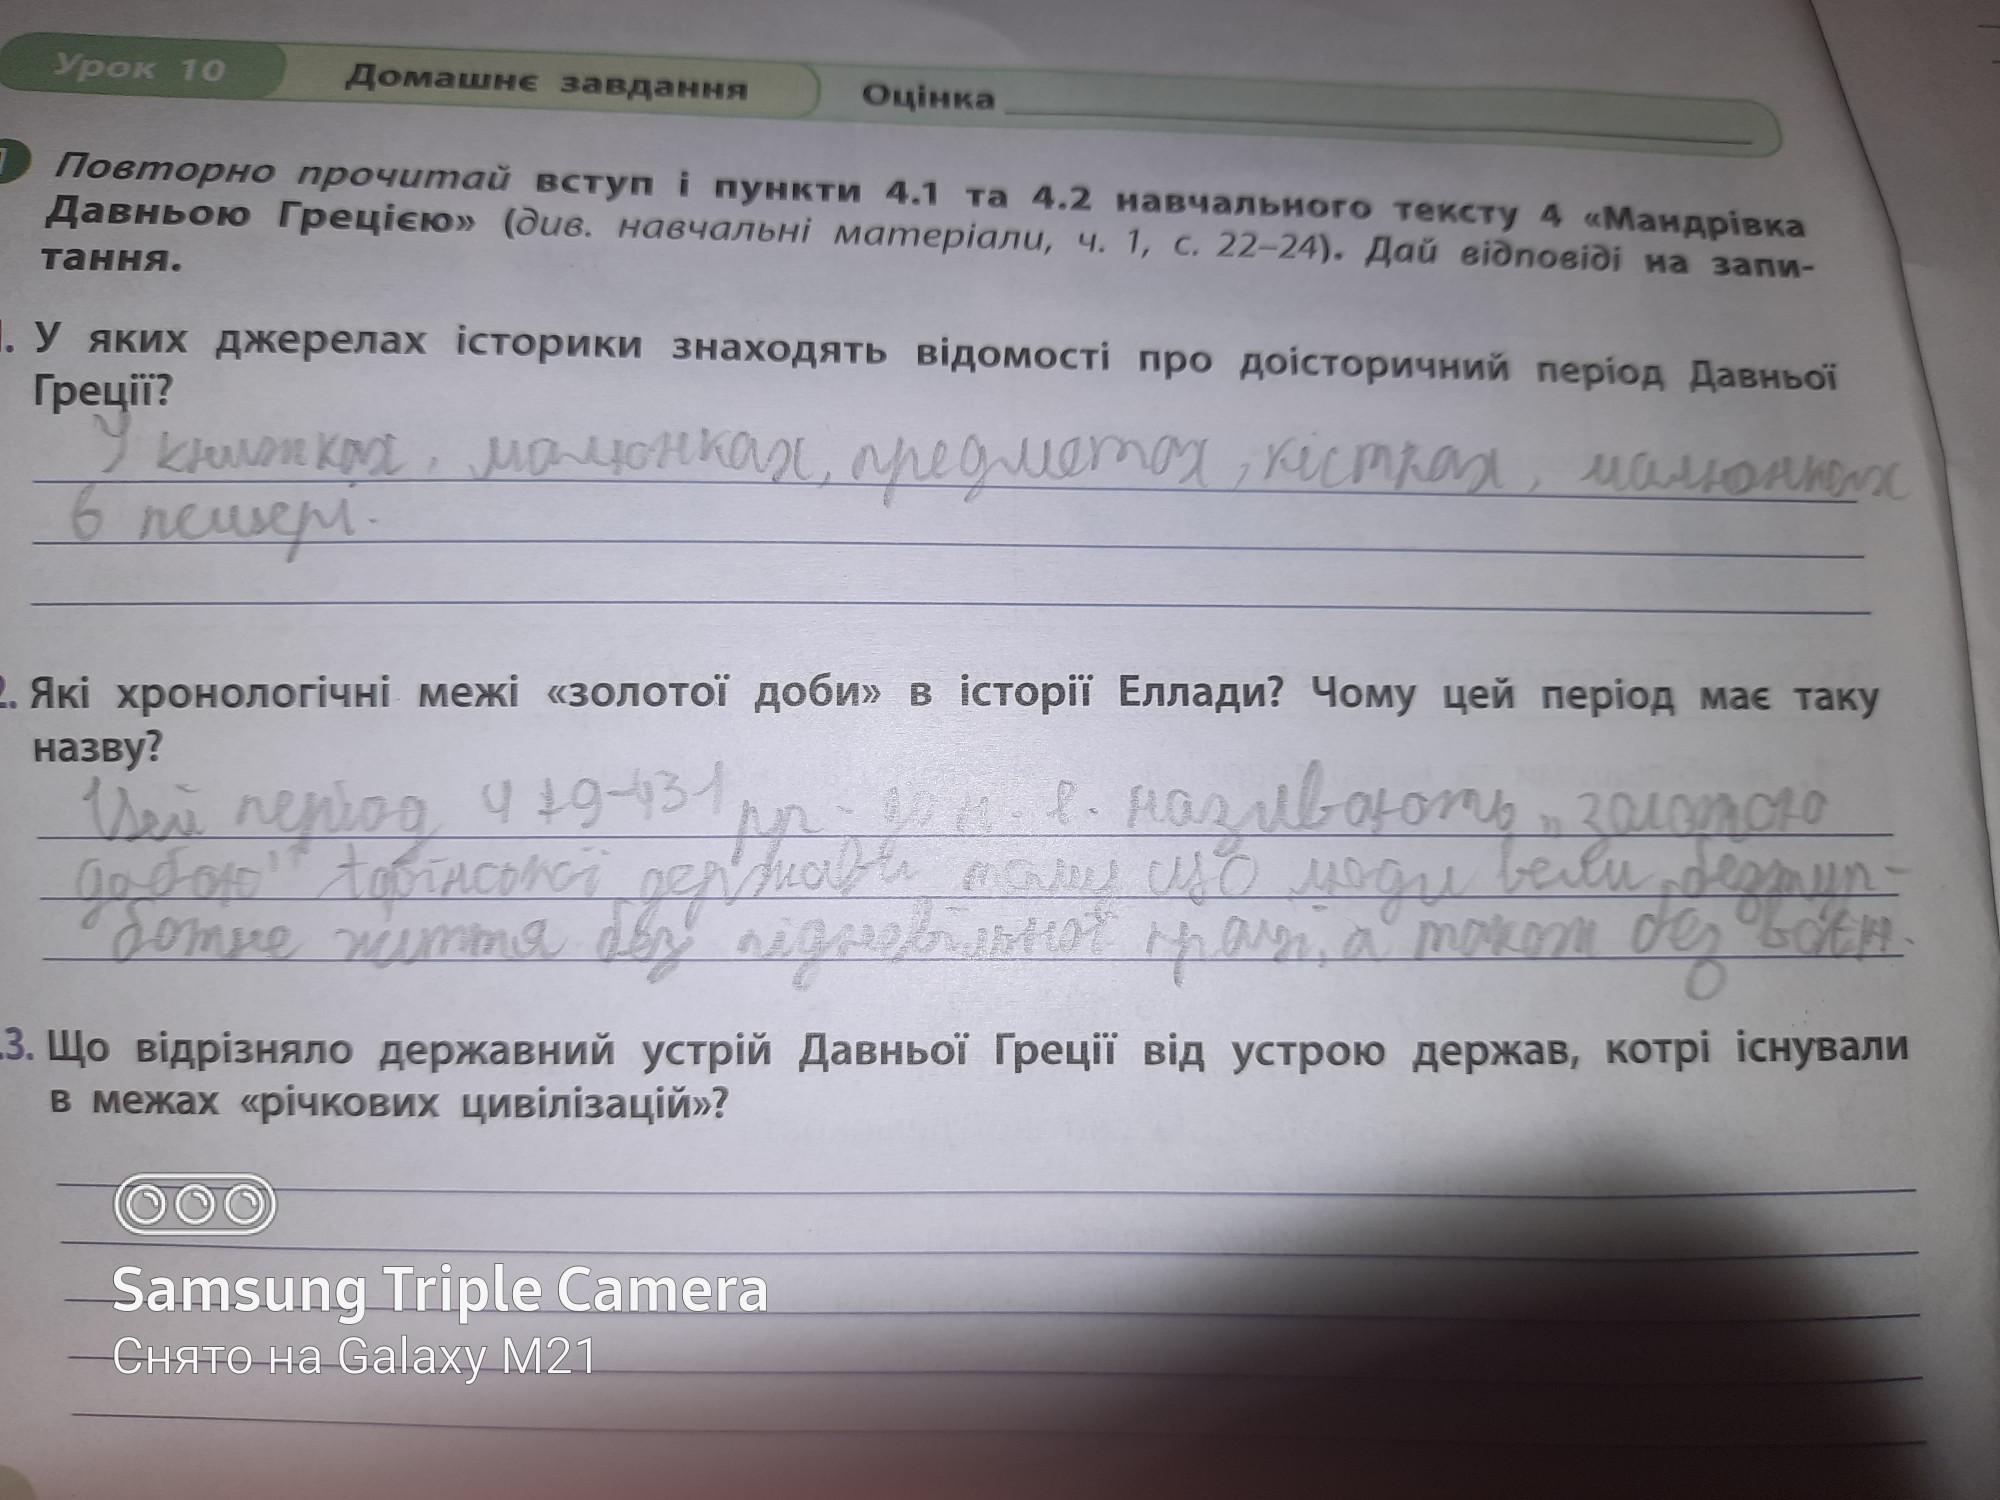 Урок 10 Домашнє завдання Оцінка
1 Повторно прочитай вступ і пункти 4.1 та 4.2 навчального тексту 4 «Мандрівка
Давньою Грецією» (див. навчальні матеріали, ч. 1, с. 22–24). Дай відповіді на запи-
тання.
1. У яких джерелах історики знаходять відомості про доісторичний період Давньої
Греції?
У книжках, малюнках, предметах, кістках, малюнках
в пещері.
2. Які хронологічні межі «золотої доби» в історії Еллади? Чому цей період має таку
назву?
Цей період 479-431 рр. до н. е. називають "золотою
добою" держави тому що люди вели безтур-
ботне життя без підневільної праці, а також без воєн.
.3. Що відрізняло державний устрій Давньої Греції від устрою держав, котрі існували
в межах «річкових цивілізацій»?
Samsung Triple Camera
Снято на Galaxy M21